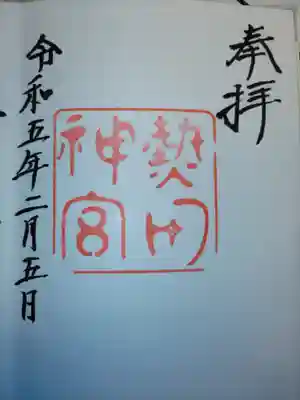 奉拝
熱田
神宮
令和五年二月五日